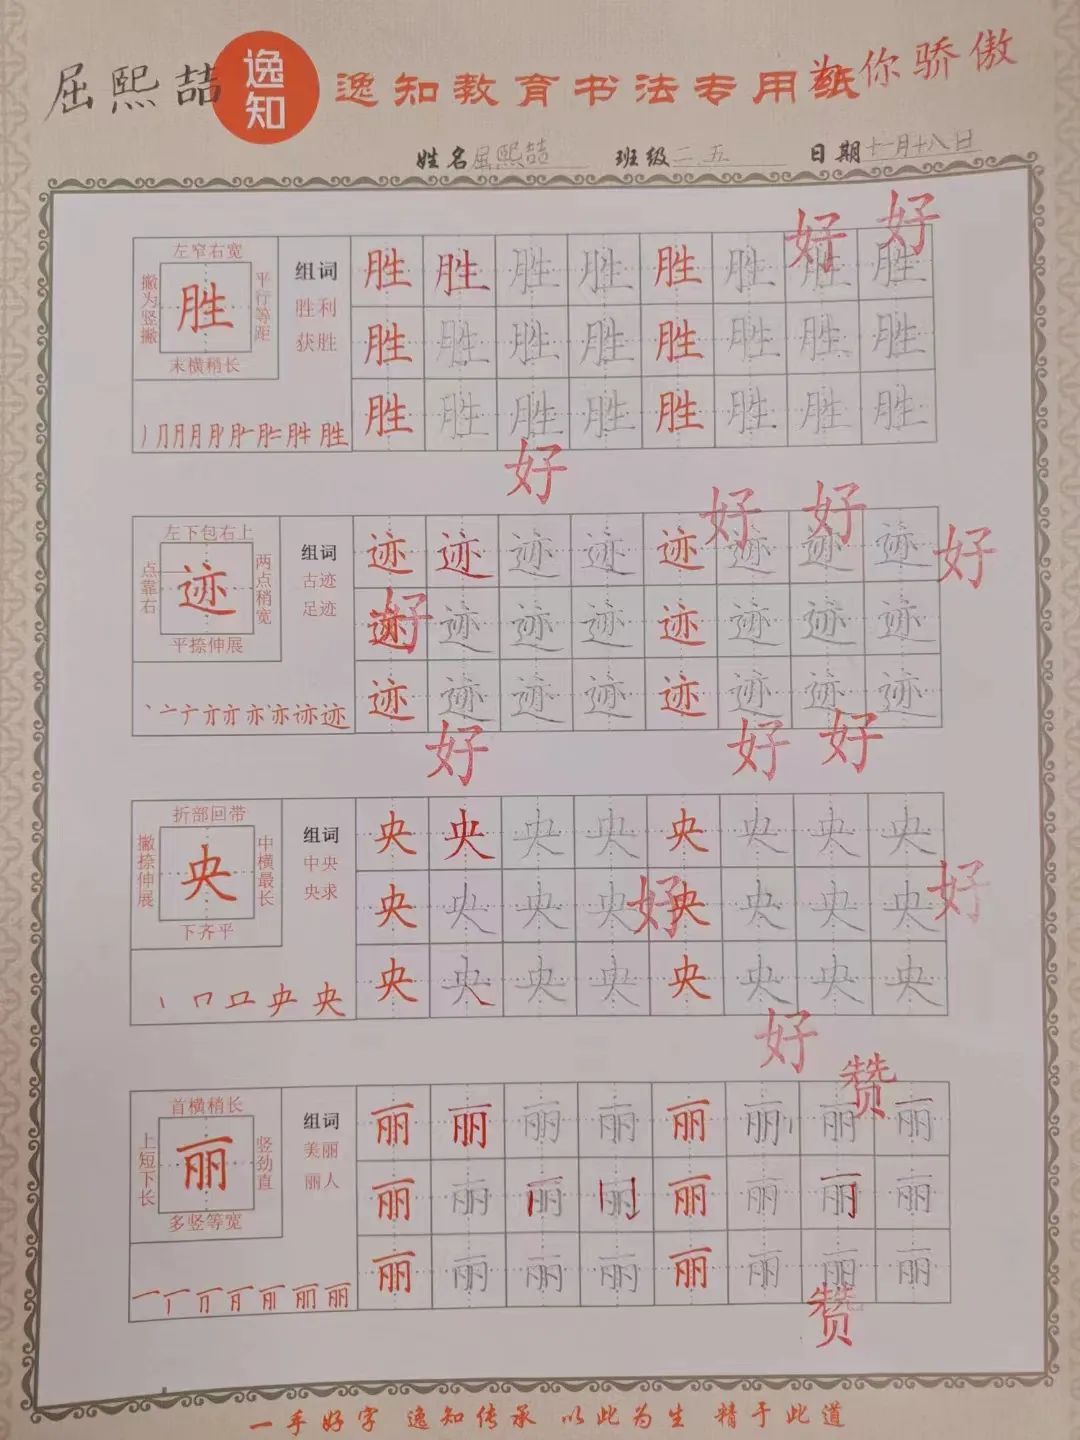 屈熙喆 逸知 逸知教育书法专用纸 为你骄傲
姓名 屈熙喆 班级 二五 日期 十一月十八日
好 好
左窄右宽
撇为竖撇 胜 平行等距
末横稍长
组词
胜利
获胜
胜 胜 胜 胜 胜 胜 胜 胜
胜 胜 胜 胜 胜 胜 胜 胜
胜 胜 胜 胜 胜 胜 胜 胜
胜
好 好 好 好
左下包右上
点靠右 迹 两点稍宽
平捺伸展
组词
古迹
足迹
迹 迹 迹 迹 迹 迹 迹 迹
迹 迹 迹 迹 迹 迹 迹 迹
好
迹 迹 迹 迹 迹 迹 迹 迹
迹
好 好 好
折部回带
撇捺伸展 央 中横最长
下齐平
组词
中央
央求
央 央 央 央 央 央 央 央
央 央 央 央 央 央 央 央
好 好
央 央 央 央 央 央 央 央
央
好
赞
首横稍长
上短下长 丽 竖劲直
多竖等宽
组词
美丽
丽人
丽 丽 丽 丽 丽 丽 丽 丽
丽 丽 丽 丽 丽 丽 丽 丽
丽 丽 丽 丽 丽 丽 丽 丽
丽
赞
一手好字 逸知传承 以此为生 精于此道